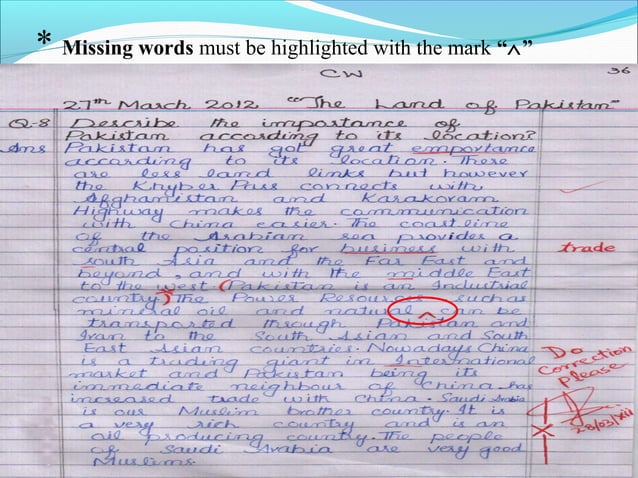 * Missing words must be highlighted with the mark “^”
CW 36
27th March 2012 "The Land of Pakistan"
Q-8 Describe the importance of
Pakistan according to its location?
Ans Pakistan has got great emportance
according to its location. There
are less land links but however
the Khyber Pass connects with
Afghanistan and Karakoram
Highway makes the communication
with China easier. The coastline
of the Arabian sea provides a
central position for business with trade
south Asia and the Far East and
beyond, and with the middle East
to the west (Pakistan is an Industrial
country) The Power Resources such as
mineral oil and natural ^ can be
transported through Pakistan and
Iran to the South Asian and South
East Asian countries. Nowadays China
is a trading giant in International
market and Pakistan being its
immediate neighbour of China has
increased trade with China. Saudi Arabia
is our Muslim brother country. It is
a very rich country and is an
oil producing country. The people
of Saudi Arabia are very good
Muslims.
Do
correction
please